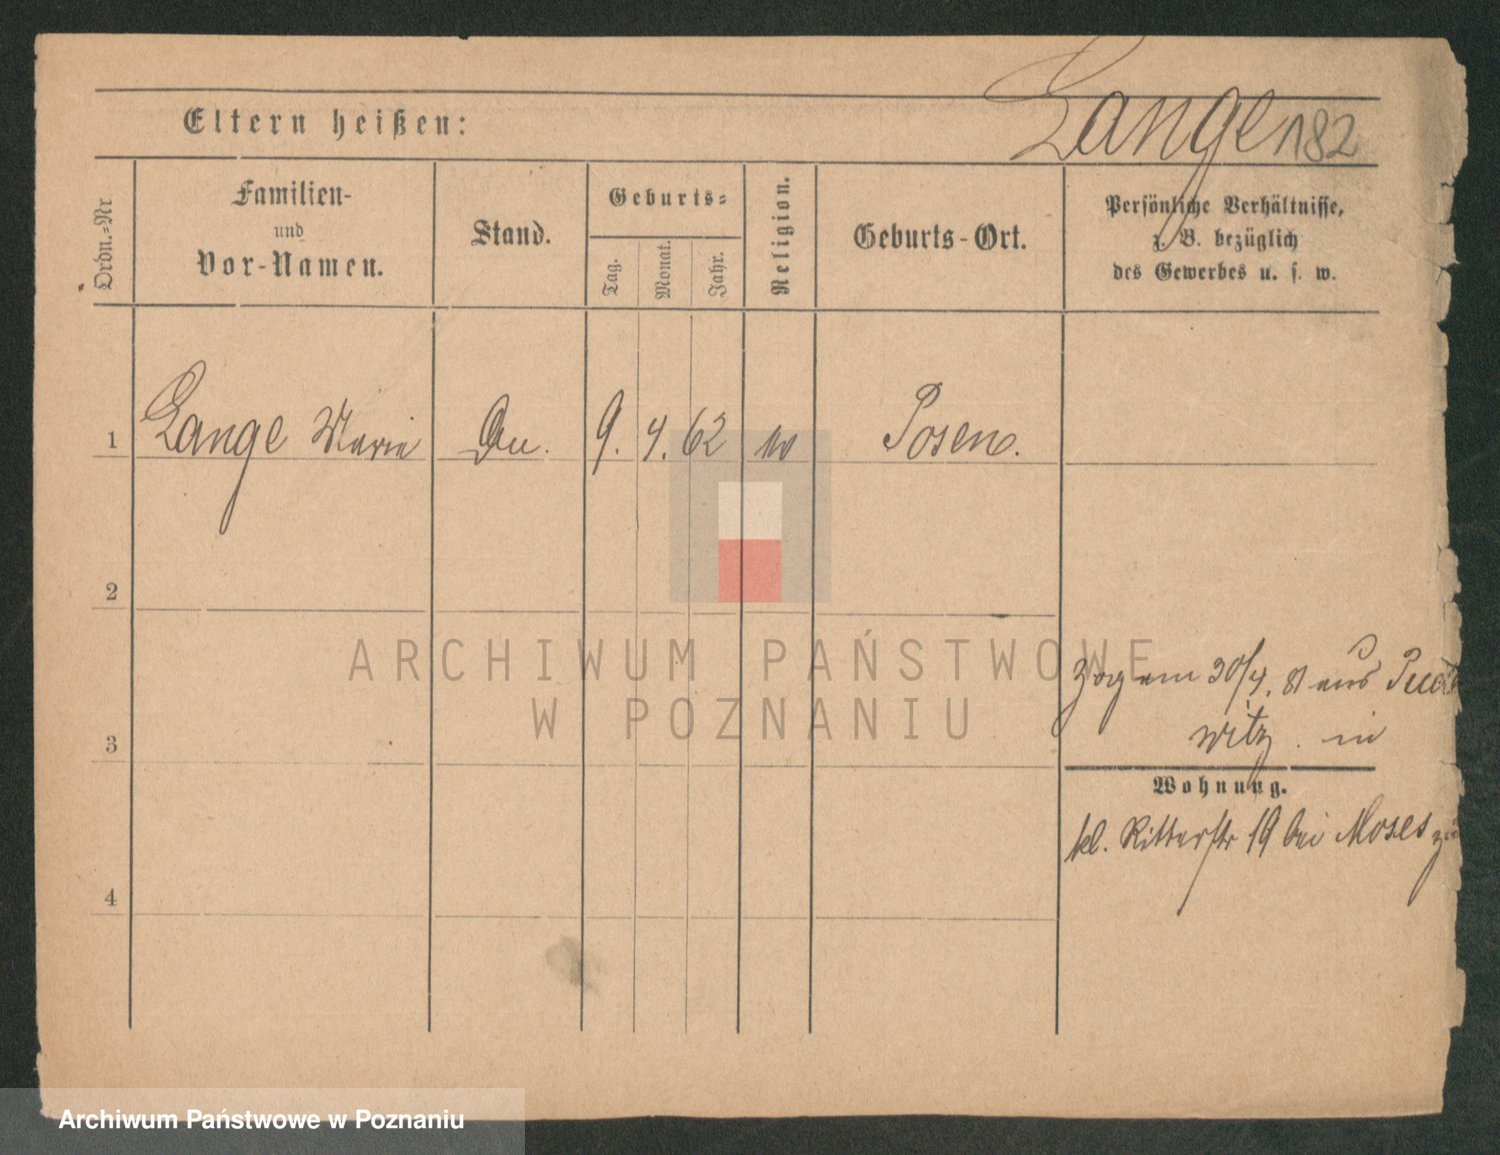 Lange 182
Eltern heißen:
Ordn.-Nr
Familien-
und
Vor-Namen.
Stand.
Geburts-
Tag.
Monat.
Jahr.
Religion.
Geburts-Ort.
Persönliche Verhältnisse,
z. B. bezüglich
des Gewerbes u. s. w.
1 Lange Marie 9. 4. 62 Posen.
2
3
4
zog am 30/4. 81 aus
witz. in
Wohnung.
kl. Ritterstr 19 bei Moses
ARCHIWUM PAŃSTWOWE
W POZNANIU
Archiwum Państwowe w Poznaniu